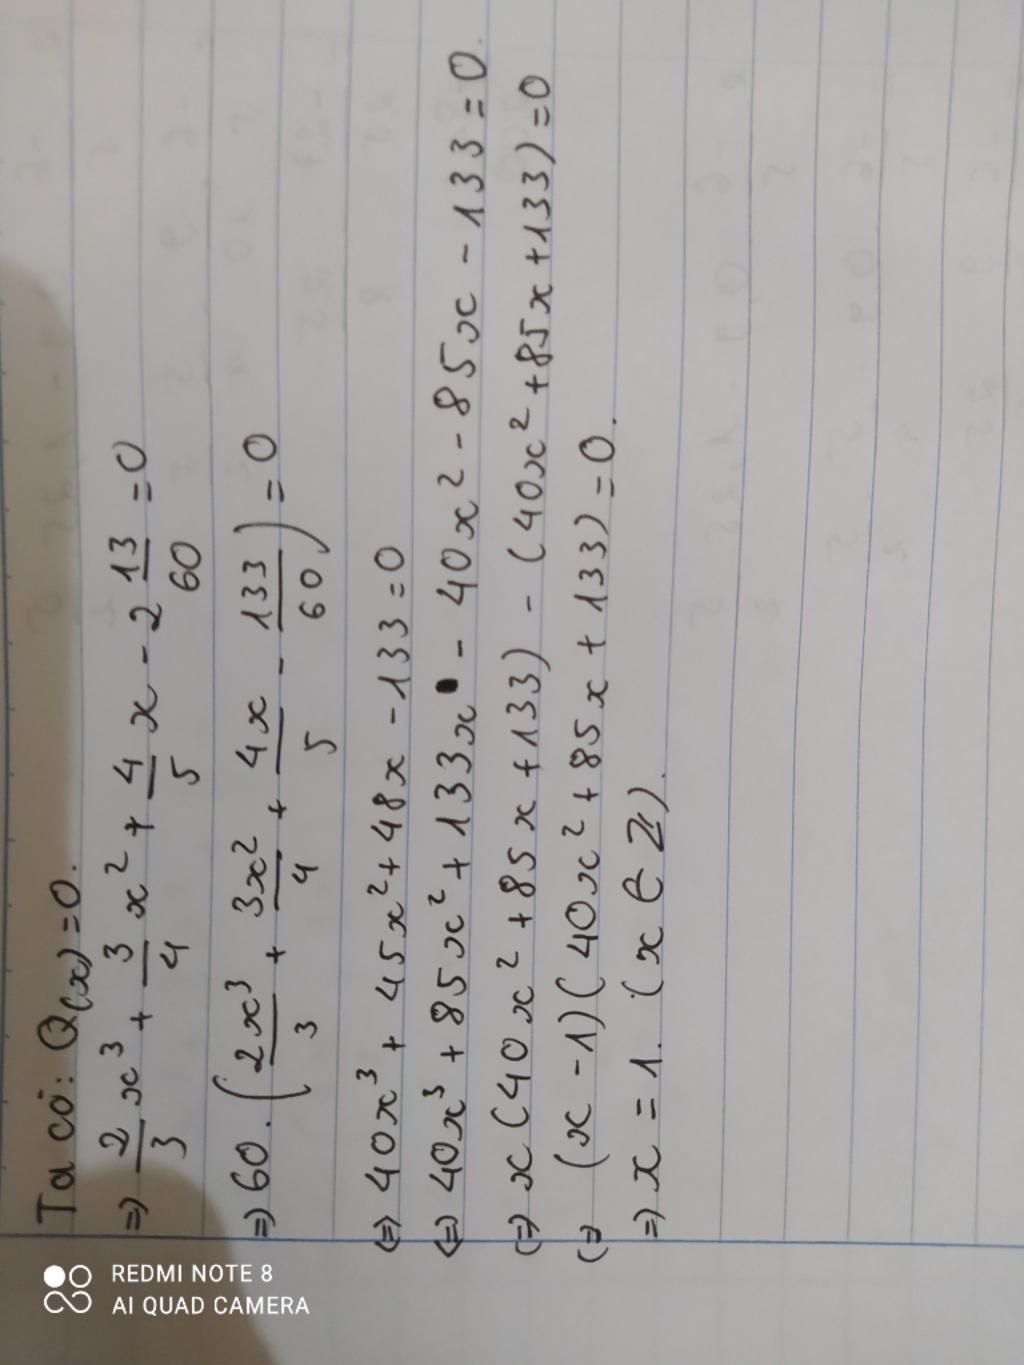 Ta có: Q(x)=0.
=> 2/3 x³ + 3/4 x² + 4/5 x - 2 13/60 = 0
=> 60. (2x³/3 + 3x²/4 + 4x/5 - 133/60) = 0
<=> 40x³ + 45x² + 48x - 133 = 0
<=> 40x³ + 85x² + 133x - 40x² - 85x - 133 = 0.
<=> x(40x² + 85x + 133) - (40x² + 85x + 133) = 0
<=> (x - 1)(40x² + 85x + 133) = 0.
=> x = 1. (x ∈ Z).
REDMI NOTE 8
AI QUAD CAMERA